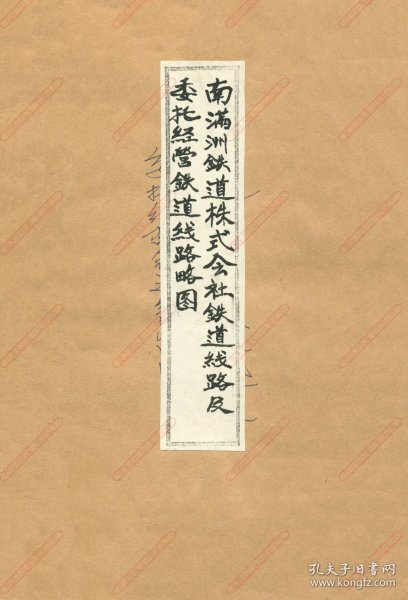 南滿洲鉄道株式会社鉄道线路及
委托经营鉄道线路略图
孔夫子旧书网
www.kongfz.com